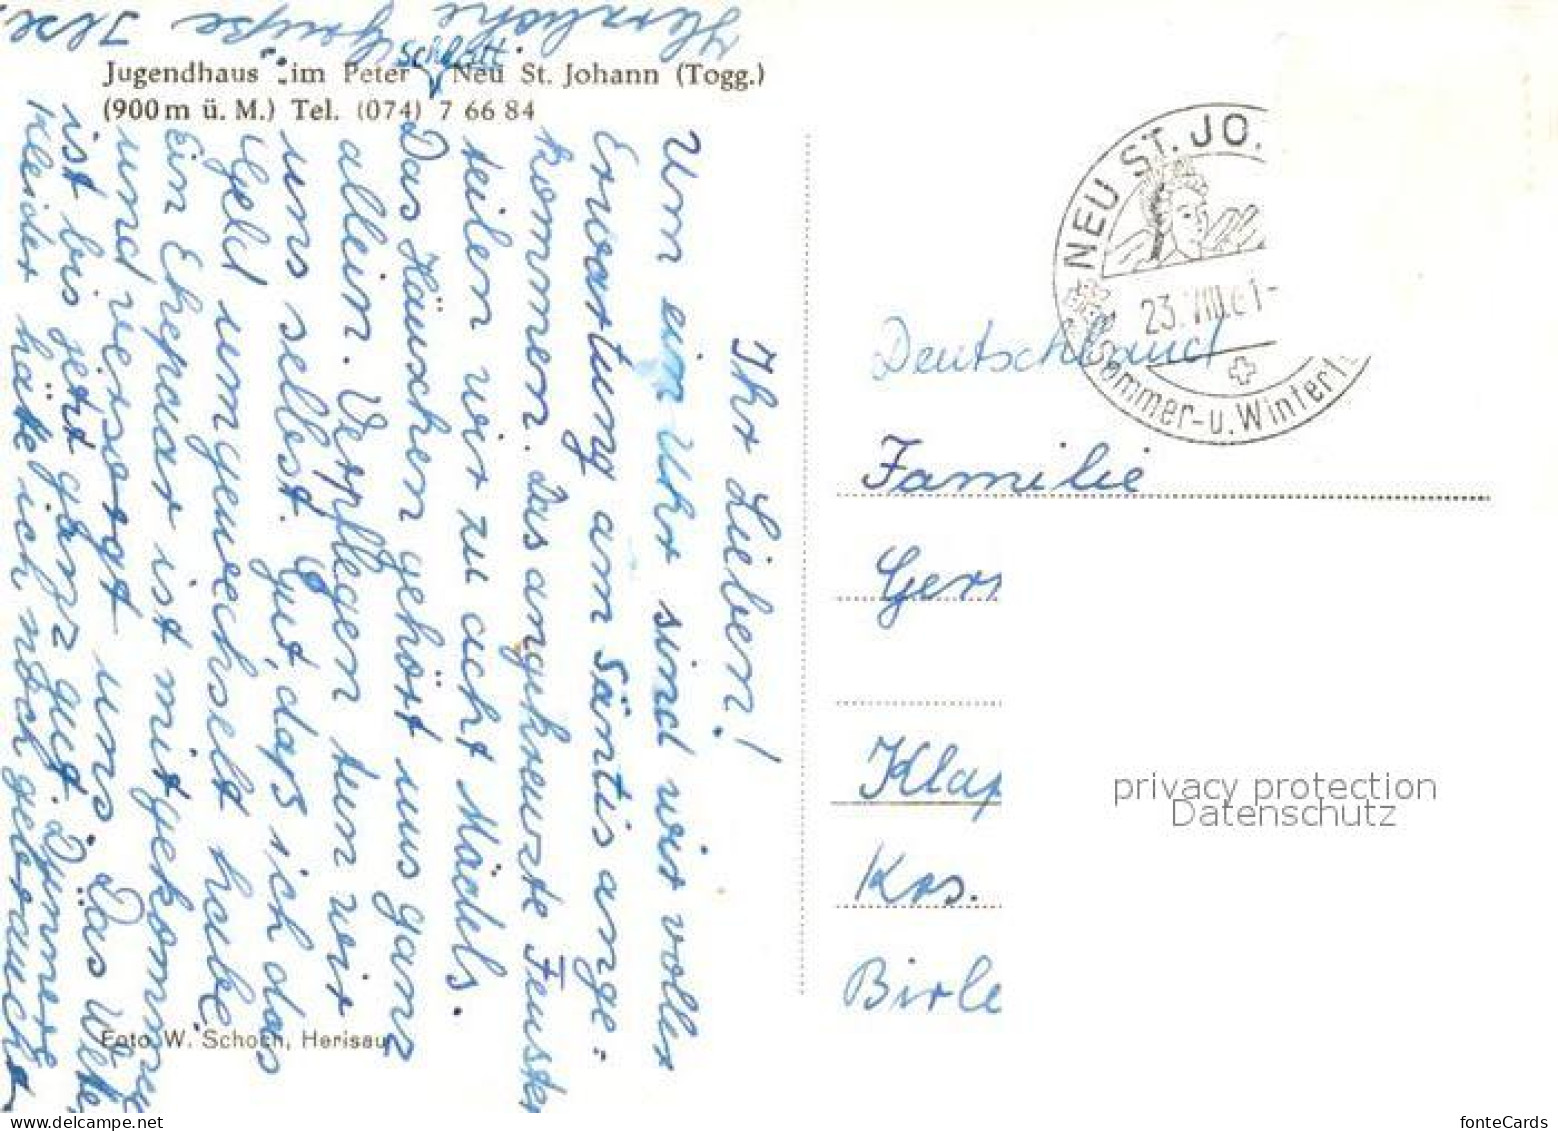 Jugendhaus „im Peter“ Neu St. Johann (Togg.)
(900 m ü. M.) Tel. (074) 7 66 84
Ihr Lieben!
Um ein Uhr sind wir voller
Erwartung am Säntis ange-
kommen. Das angekreuzte Fenster
teilen wir zu acht Mädels.
Das Häuschen gehört uns ganz
allein. Verpflegen tun wir
uns selbst. Gut, daß ich das
Geld umgewechselt habe.
Ein Ehepaar ist mitgekommen
und versorgt uns. Das Wetter
ist bis jetzt ganz gut. Dünnere
Kleider hätte ich noch gebraucht.
Herzliche Grüße Ilse
Foto W. Schoch, Herisau
NEU ST. JO
23.VIII.61-
Sommer- u. Winter
Deutschland
Familie
Gerr
Klap
Krs.
Birle
privacy protection
Datenschutz
delcampe.net
fonteCards